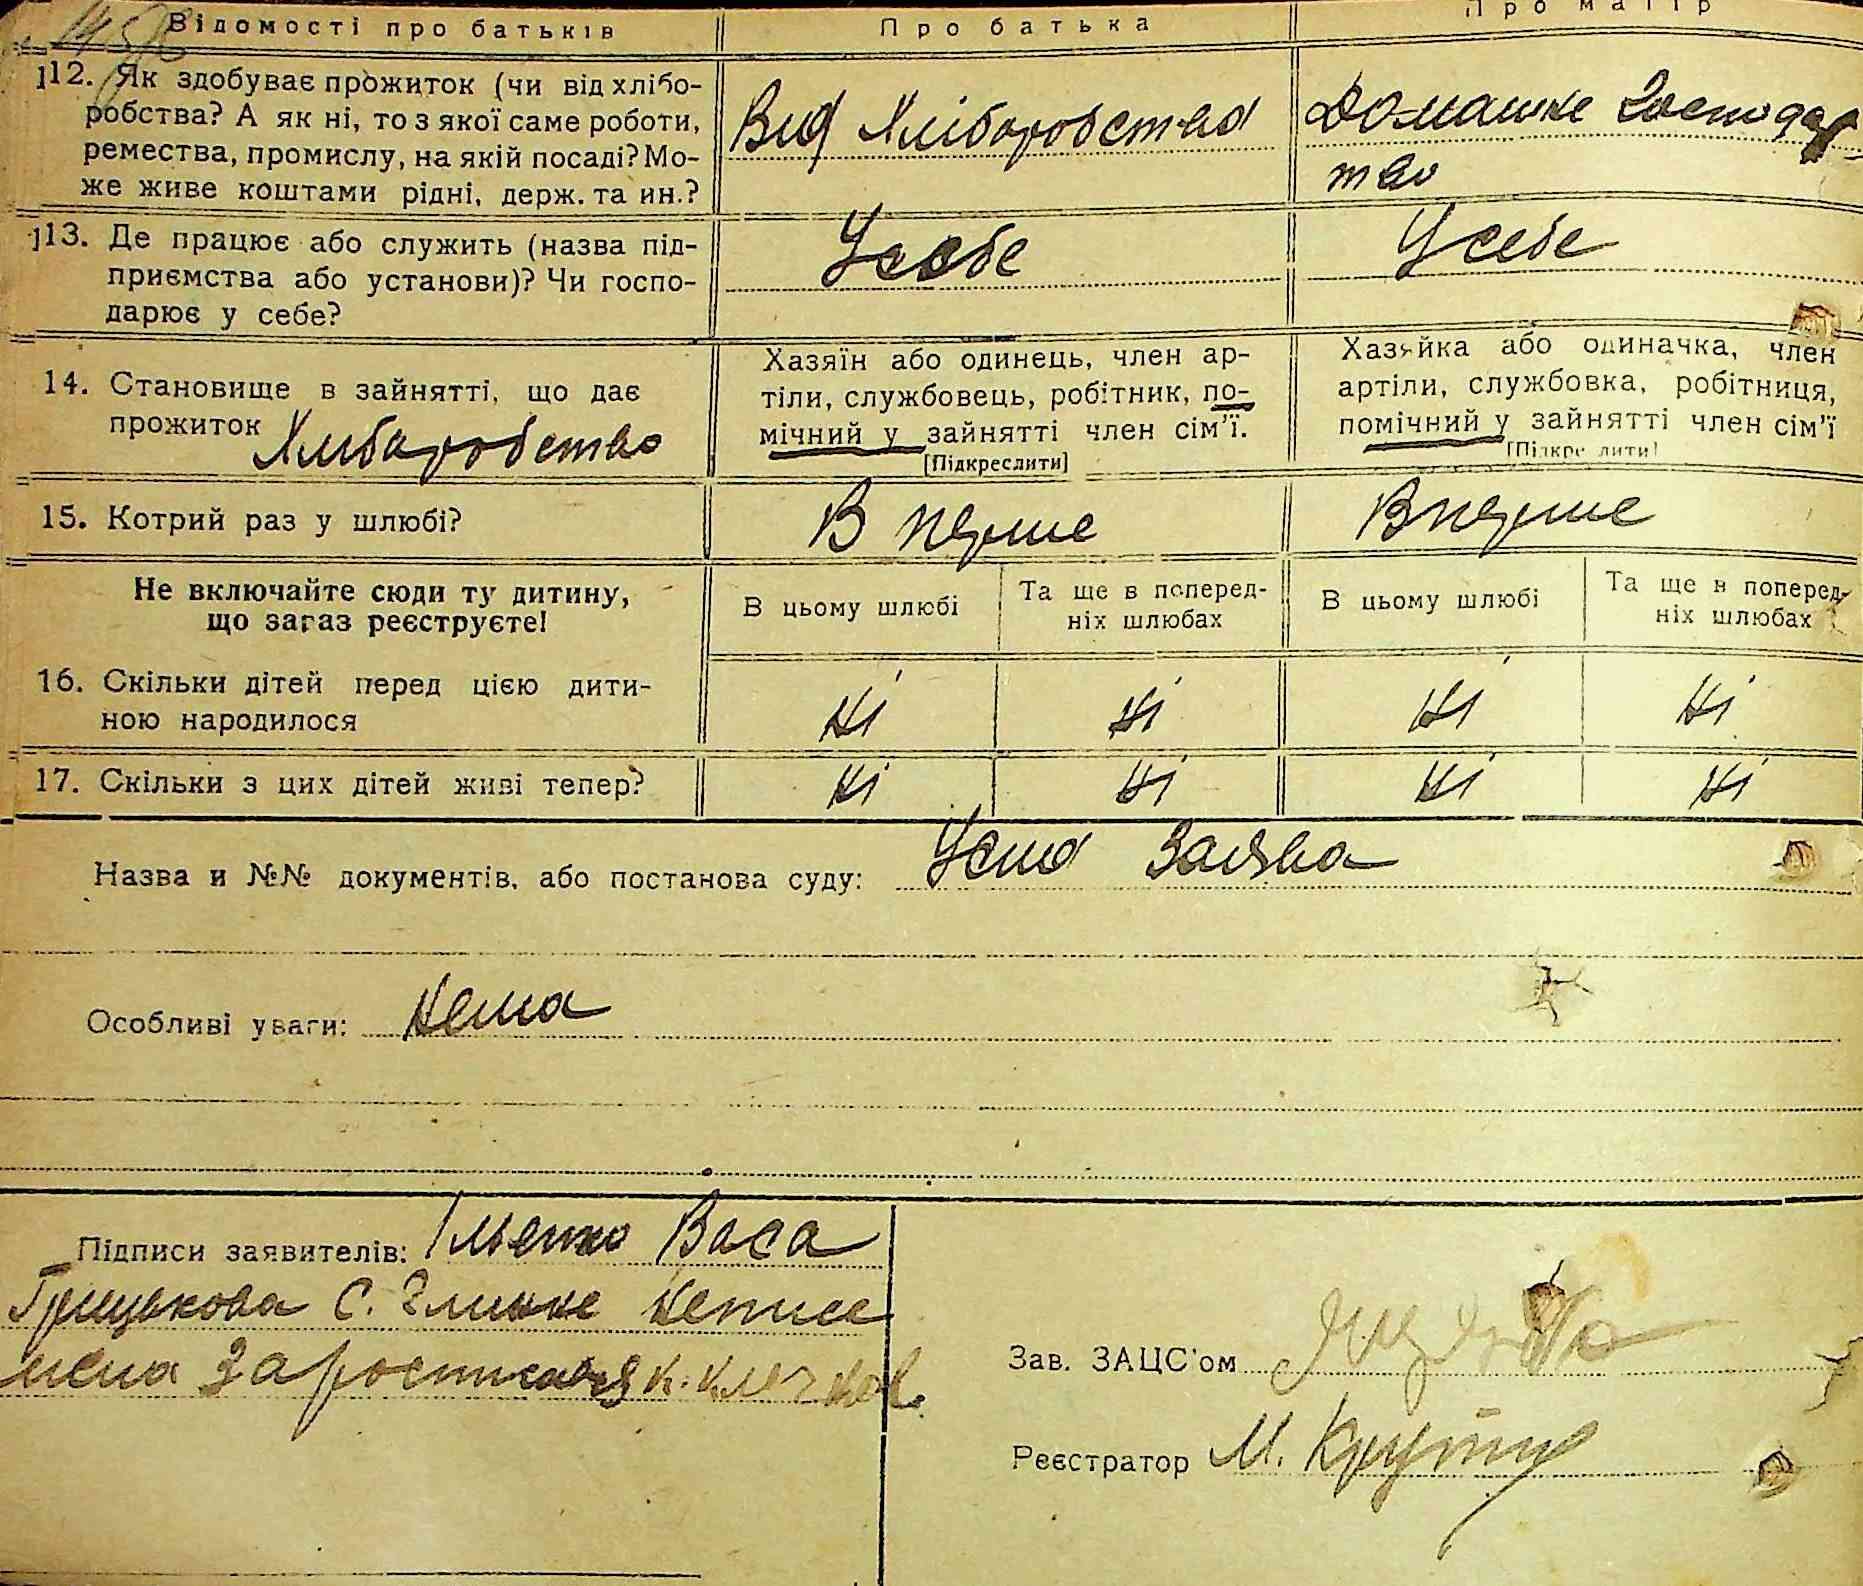 Відомості про батьків
Про батька
Про матір
12. Як здобуває прожиток (чи від хлібо-
робства? А як ні, то з якої саме роботи,
ремества, промислу, на якій посаді? Мо-
же живе коштами рідні, держ. та ин.?
Вид Хліборобства
Домашне Господар
тво
13. Де працює або служить (назва під-
приємства або установи)? Чи госпо-
дарює у себе?
Усебе
Усебе
14. Становище в зайнятті, що дає
прожиток Хлиборобство
Хазяїн або одинець, член ар-
тіли, службовець, робітник, по-
мічний у зайнятті член сім'ї.
[Підкреслити]
Хазяйка або одиначка, член
артіли, службовка, робітниця,
помічний у зайнятті член сім'ї
[Підкреслити]
15. Котрий раз у шлюбі?
В перше
Вперше
Не включайте сюди ту дитину,
що зараз реєструєте!
В цьому шлюбі
Та ще в поперед-
ніх шлюбах
В цьому шлюбі
Та ще в поперед-
ніх шлюбах
16. Скільки дітей перед цією дити-
ною народилося
Ні
Ні
Ні
Ні
17. Скільки з цих дітей живі тепер?
Ні
Ні
Ні
Ні
Назва и №№ документів, або постанова суду: Усна Заява
Особливі уваги: Нема
Підписи заявителів: Васа
Грицькова С. Глинне Неписе
мена За
Зав. ЗАЦС'ом
Реєстратор М.